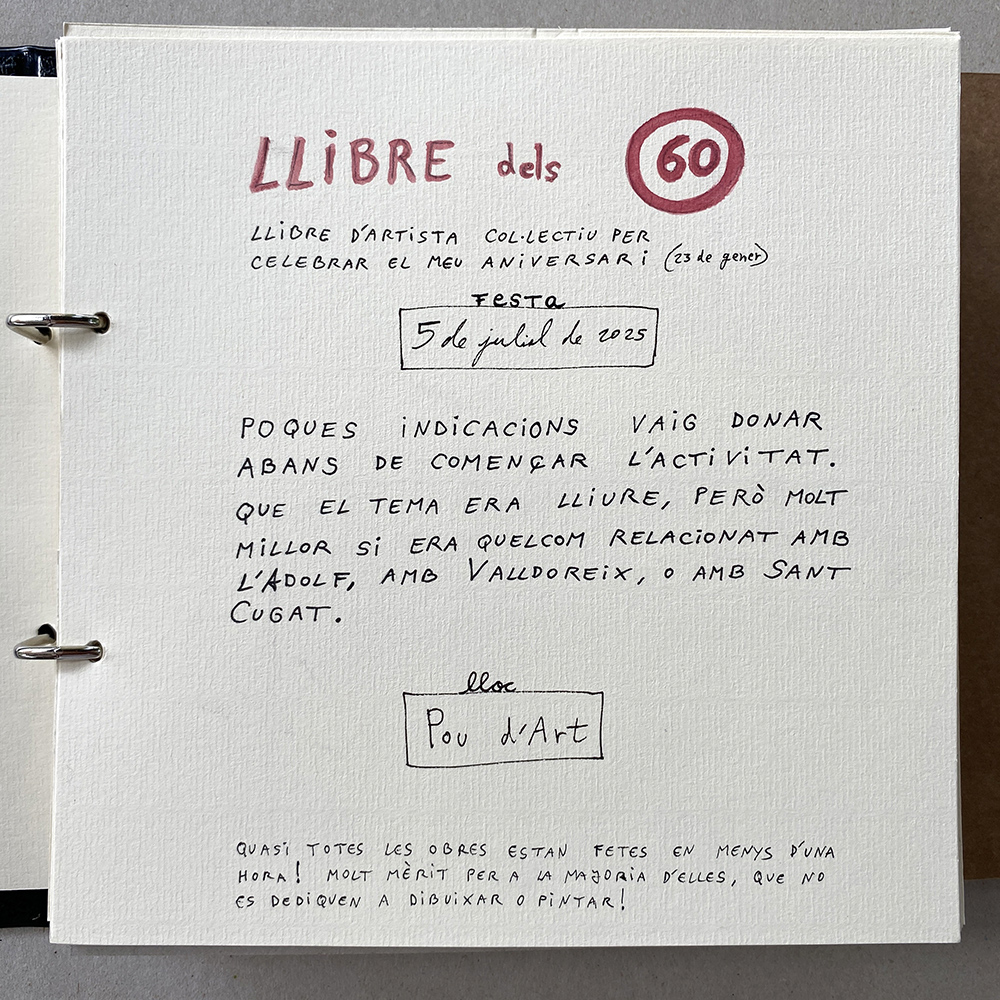 LLiBRE dels 60
LLIBRE D'ARTISTA COL·LECTIU PER
CELEBRAR EL MEU ANIVERSARI (23 de gener)
FESTA
5 de juliol de 2025
POQUES INDICACIONS VAIG DONAR
ABANS DE COMENÇAR L'ACTIVITAT.
QUE EL TEMA ERA LLIURE, PERÒ MOLT
MILLOR SI ERA QUELCOM RELACIONAT AMB
L'ADOLF, AMB VALLDOREIX, O AMB SANT
CUGAT.
lloc
Pou d'Art
QUASI TOTES LES OBRES ESTAN FETES EN MENYS D'UNA
HORA! MOLT MÈRIT PER A LA MAJORIA D'ELLES, QUE NO
ES DEDIQUEN A DIBUIXAR O PINTAR!